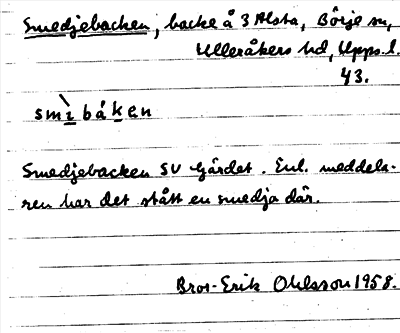 Smedjebacken, backe å 3 Alsta, Börje sn,
Ulleråkers hd, Upps. l.
43.
smìbáken
Smedjebacken SV Gärdet. Enl. meddela-
ren har det stått en smedja där.
Bror-Erik Ohlsson 1958.